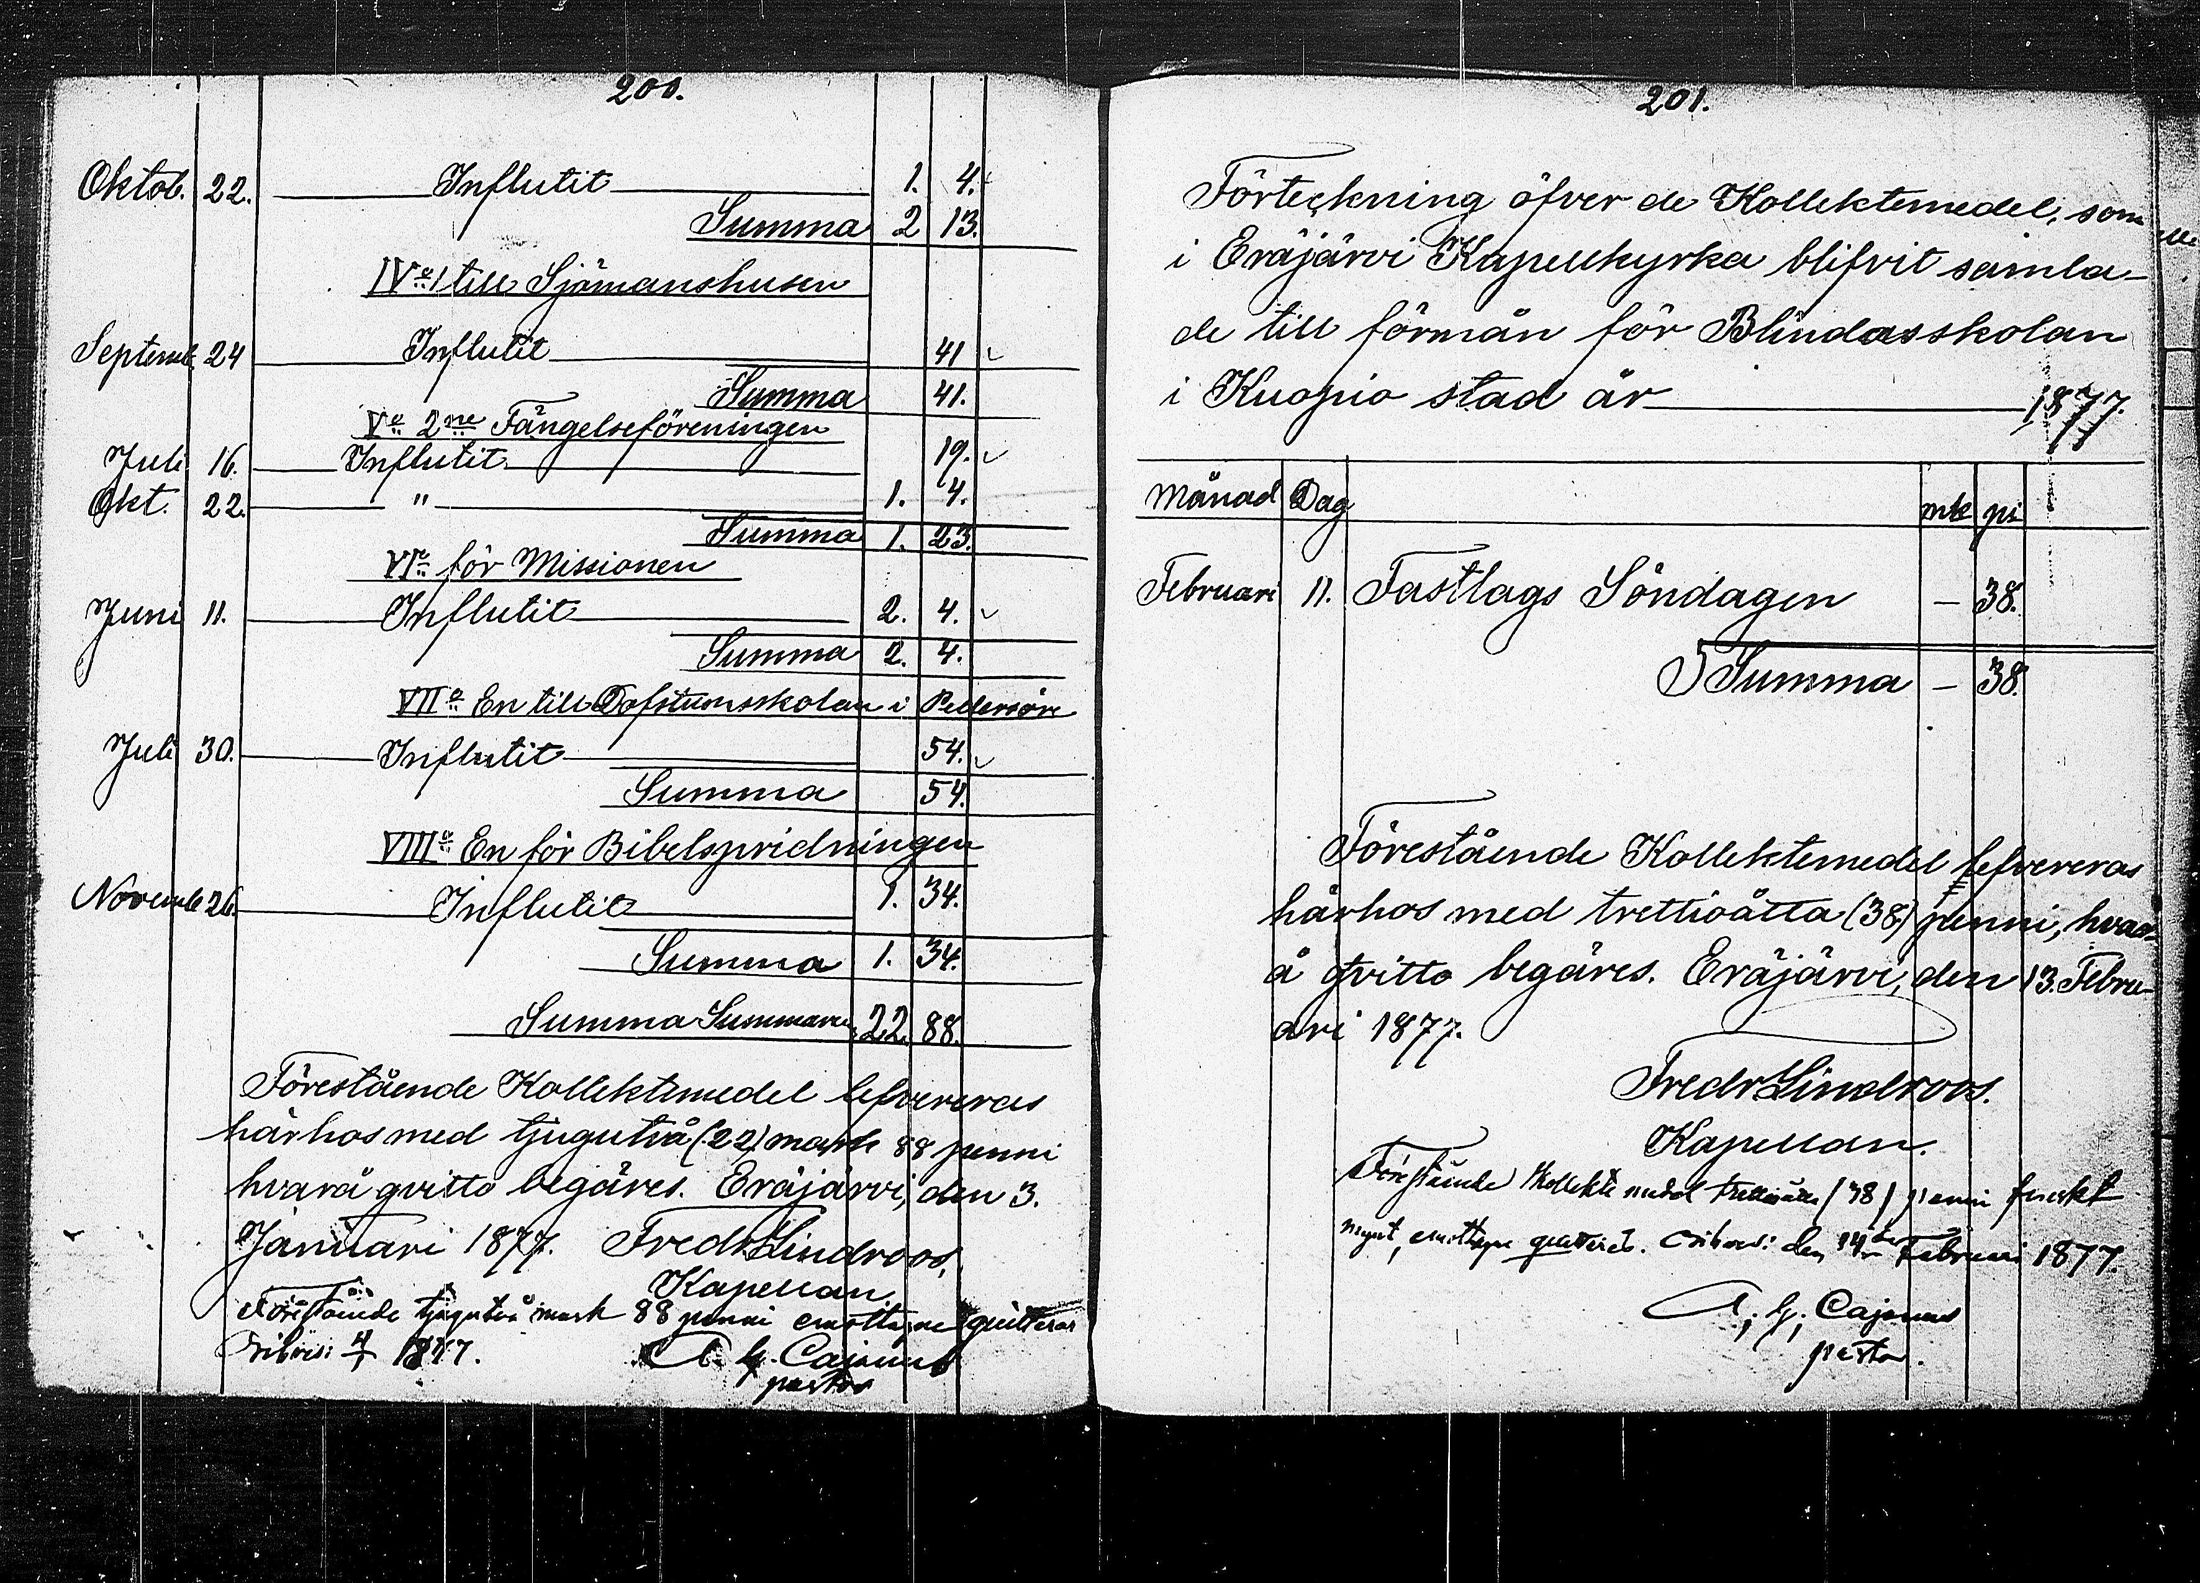 200.
Oktob. 22. Influtit 1. 4.
Summa 2 13.
IVe/ till Sjömanshusen
Septemb. 24 Influtit 41
Summa 41.
Ve 2ne Fängelseföreningen
Juli 16. Influtit 19.
Okt. 22. " 1. 4.
Summa 1. 23.
VIe för Missionen
Juni 11. Influtit 2. 4.
Summa 2. 4.
VIIe En till Döfstumsskolan i Pedersöre
Juli 30. Influtit 54.
Summa 54.
VIIIe En för Bibelspridningen
Novemb 26. Influtit 1. 34.
Summa 1. 34.
Summa Summarum 22. 88.
Förestående Kollektemedel lefvereras
härhos med tjugutvå (22) mark 88 penni
hvarå qvitto begäres. Eräjärvi, den 3.
Januari 1877. Fredr Lindroos,
Kapellan.
Förestående tjugutvå mark 88 penni emottagne quitteras
4/1 1877. A. G. Cajanus
pastor
201.
Förteckning öfver de Kollektemedel, som
i Eräjärvi Kapellkyrka blifvit samla-
de till förmån för Blindasskolan
i Kuopio stad år 1877.
Månad Dag mk pi
Februari 11. Fastlags Söndagen — 38.
Summa — 38.
Förestående Kollektemedel lefvereras
härhos med trettioåtta (38) penni, hvar-
å qvitto begäres. Eräjärvi, den 13. Febru-
ari 1877.
Fredr Lindroos.
Kapellan.
Förestående Kollekte medel trettioåtta (38) penni finskt
mynt, emottagne quitteras. den 14de Februari 1877.
A. G. Cajanus
pastor.